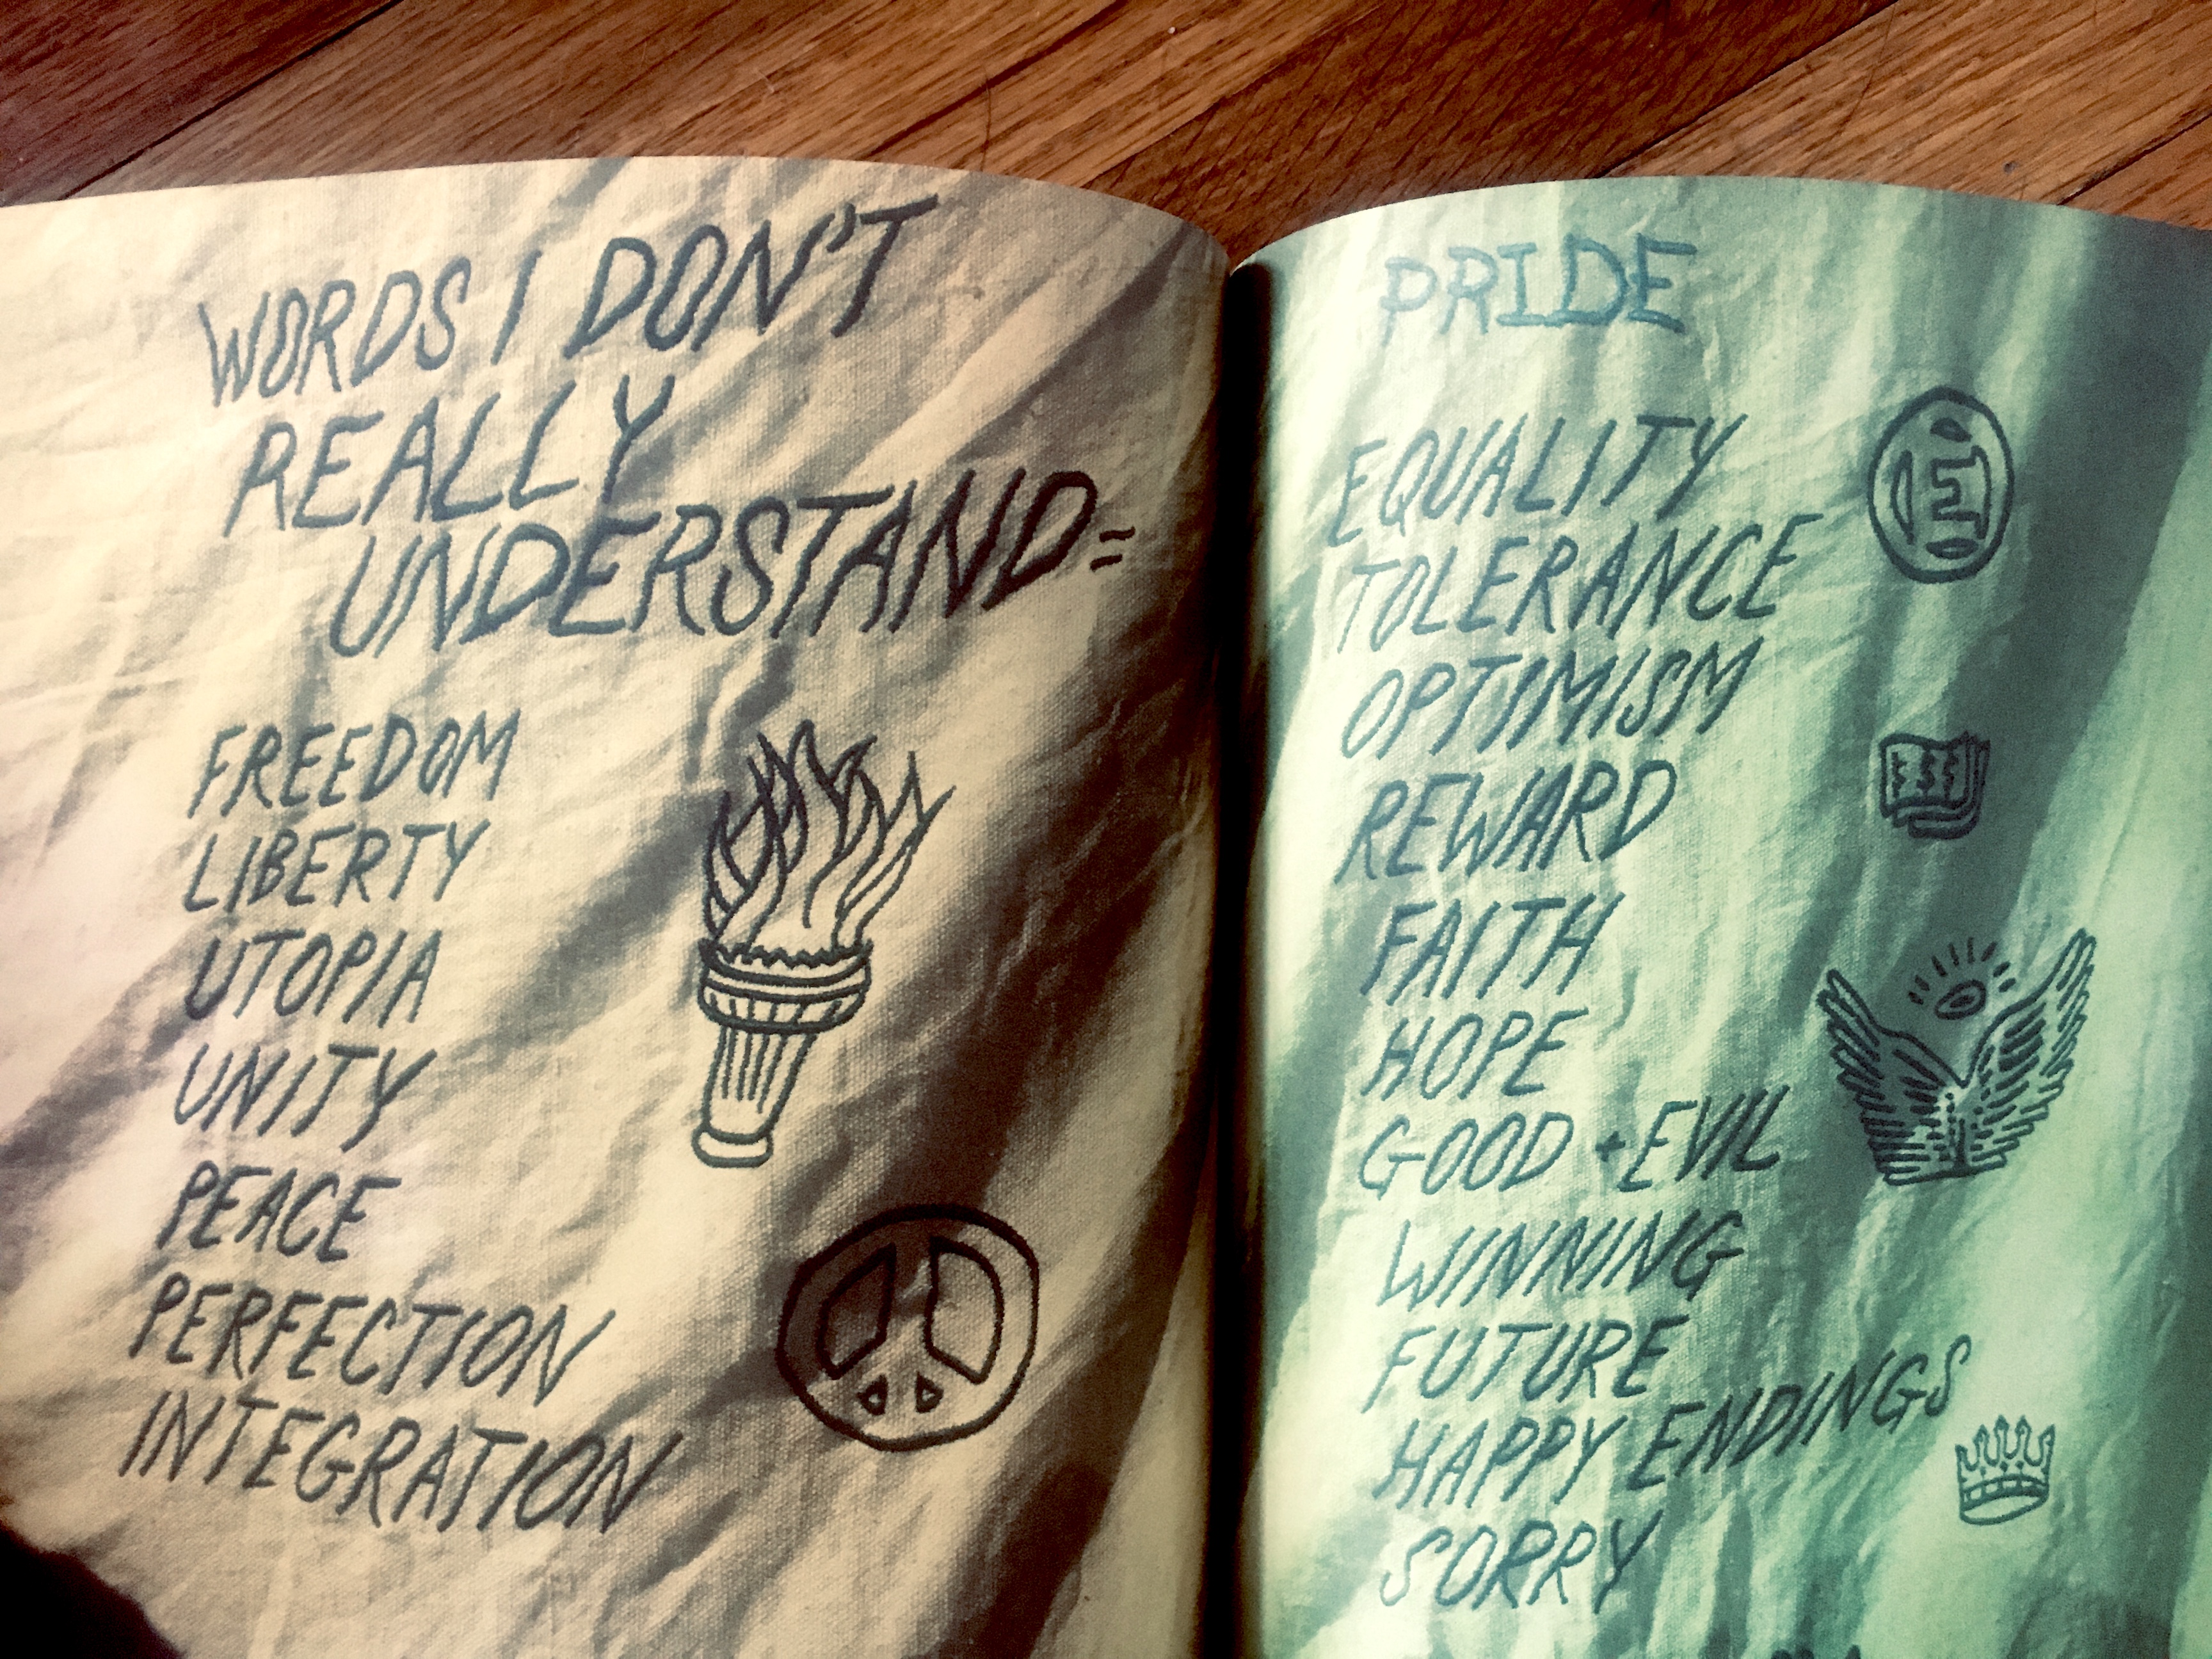 WORDS I DON'T
REALLY
UNDERSTAND=
FREEDOM
LIBERTY
UTOPIA
UNITY
PEACE
PERFECTION
INTEGRATION
PRIDE
EQUALITY
TOLERANCE
OPTIMISM
REWARD
FAITH
HOPE
GOOD + EVIL
WINNING
FUTURE
HAPPY ENDINGS
SORRY
E
$$$